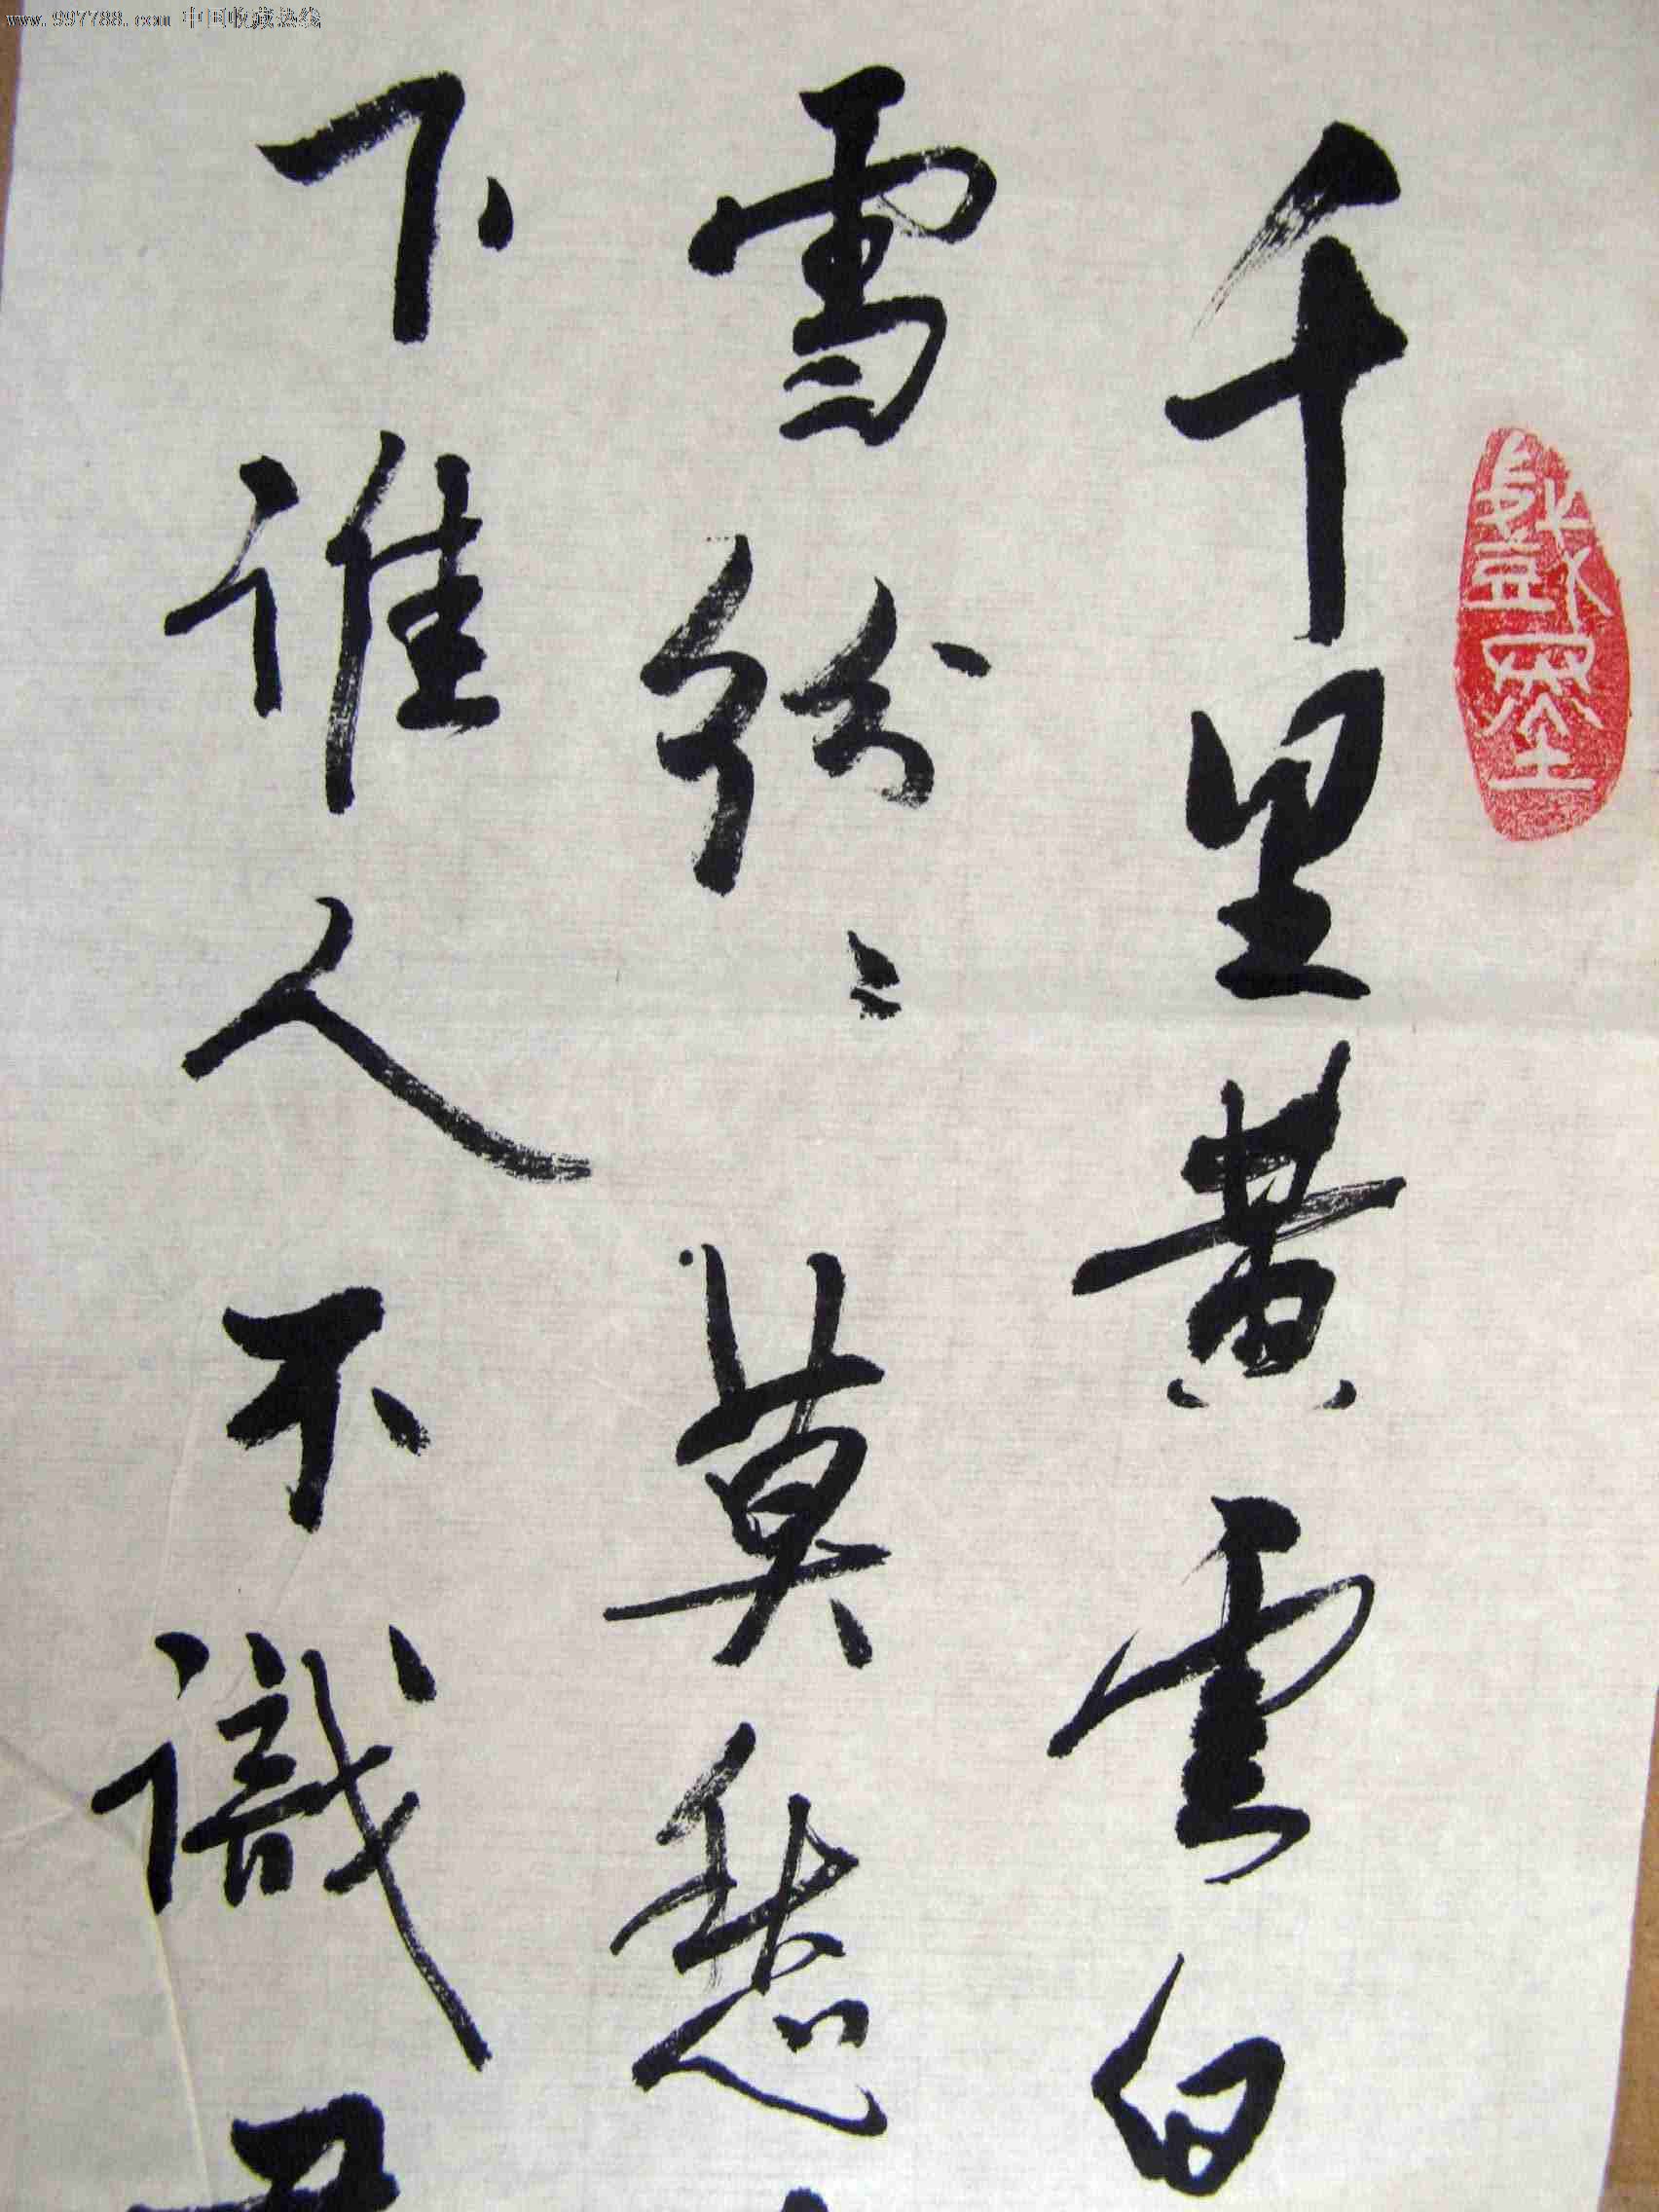 www.997788.com 中国收藏热线
千里黄雲白
雪紛〻莫愁
下谁人不識